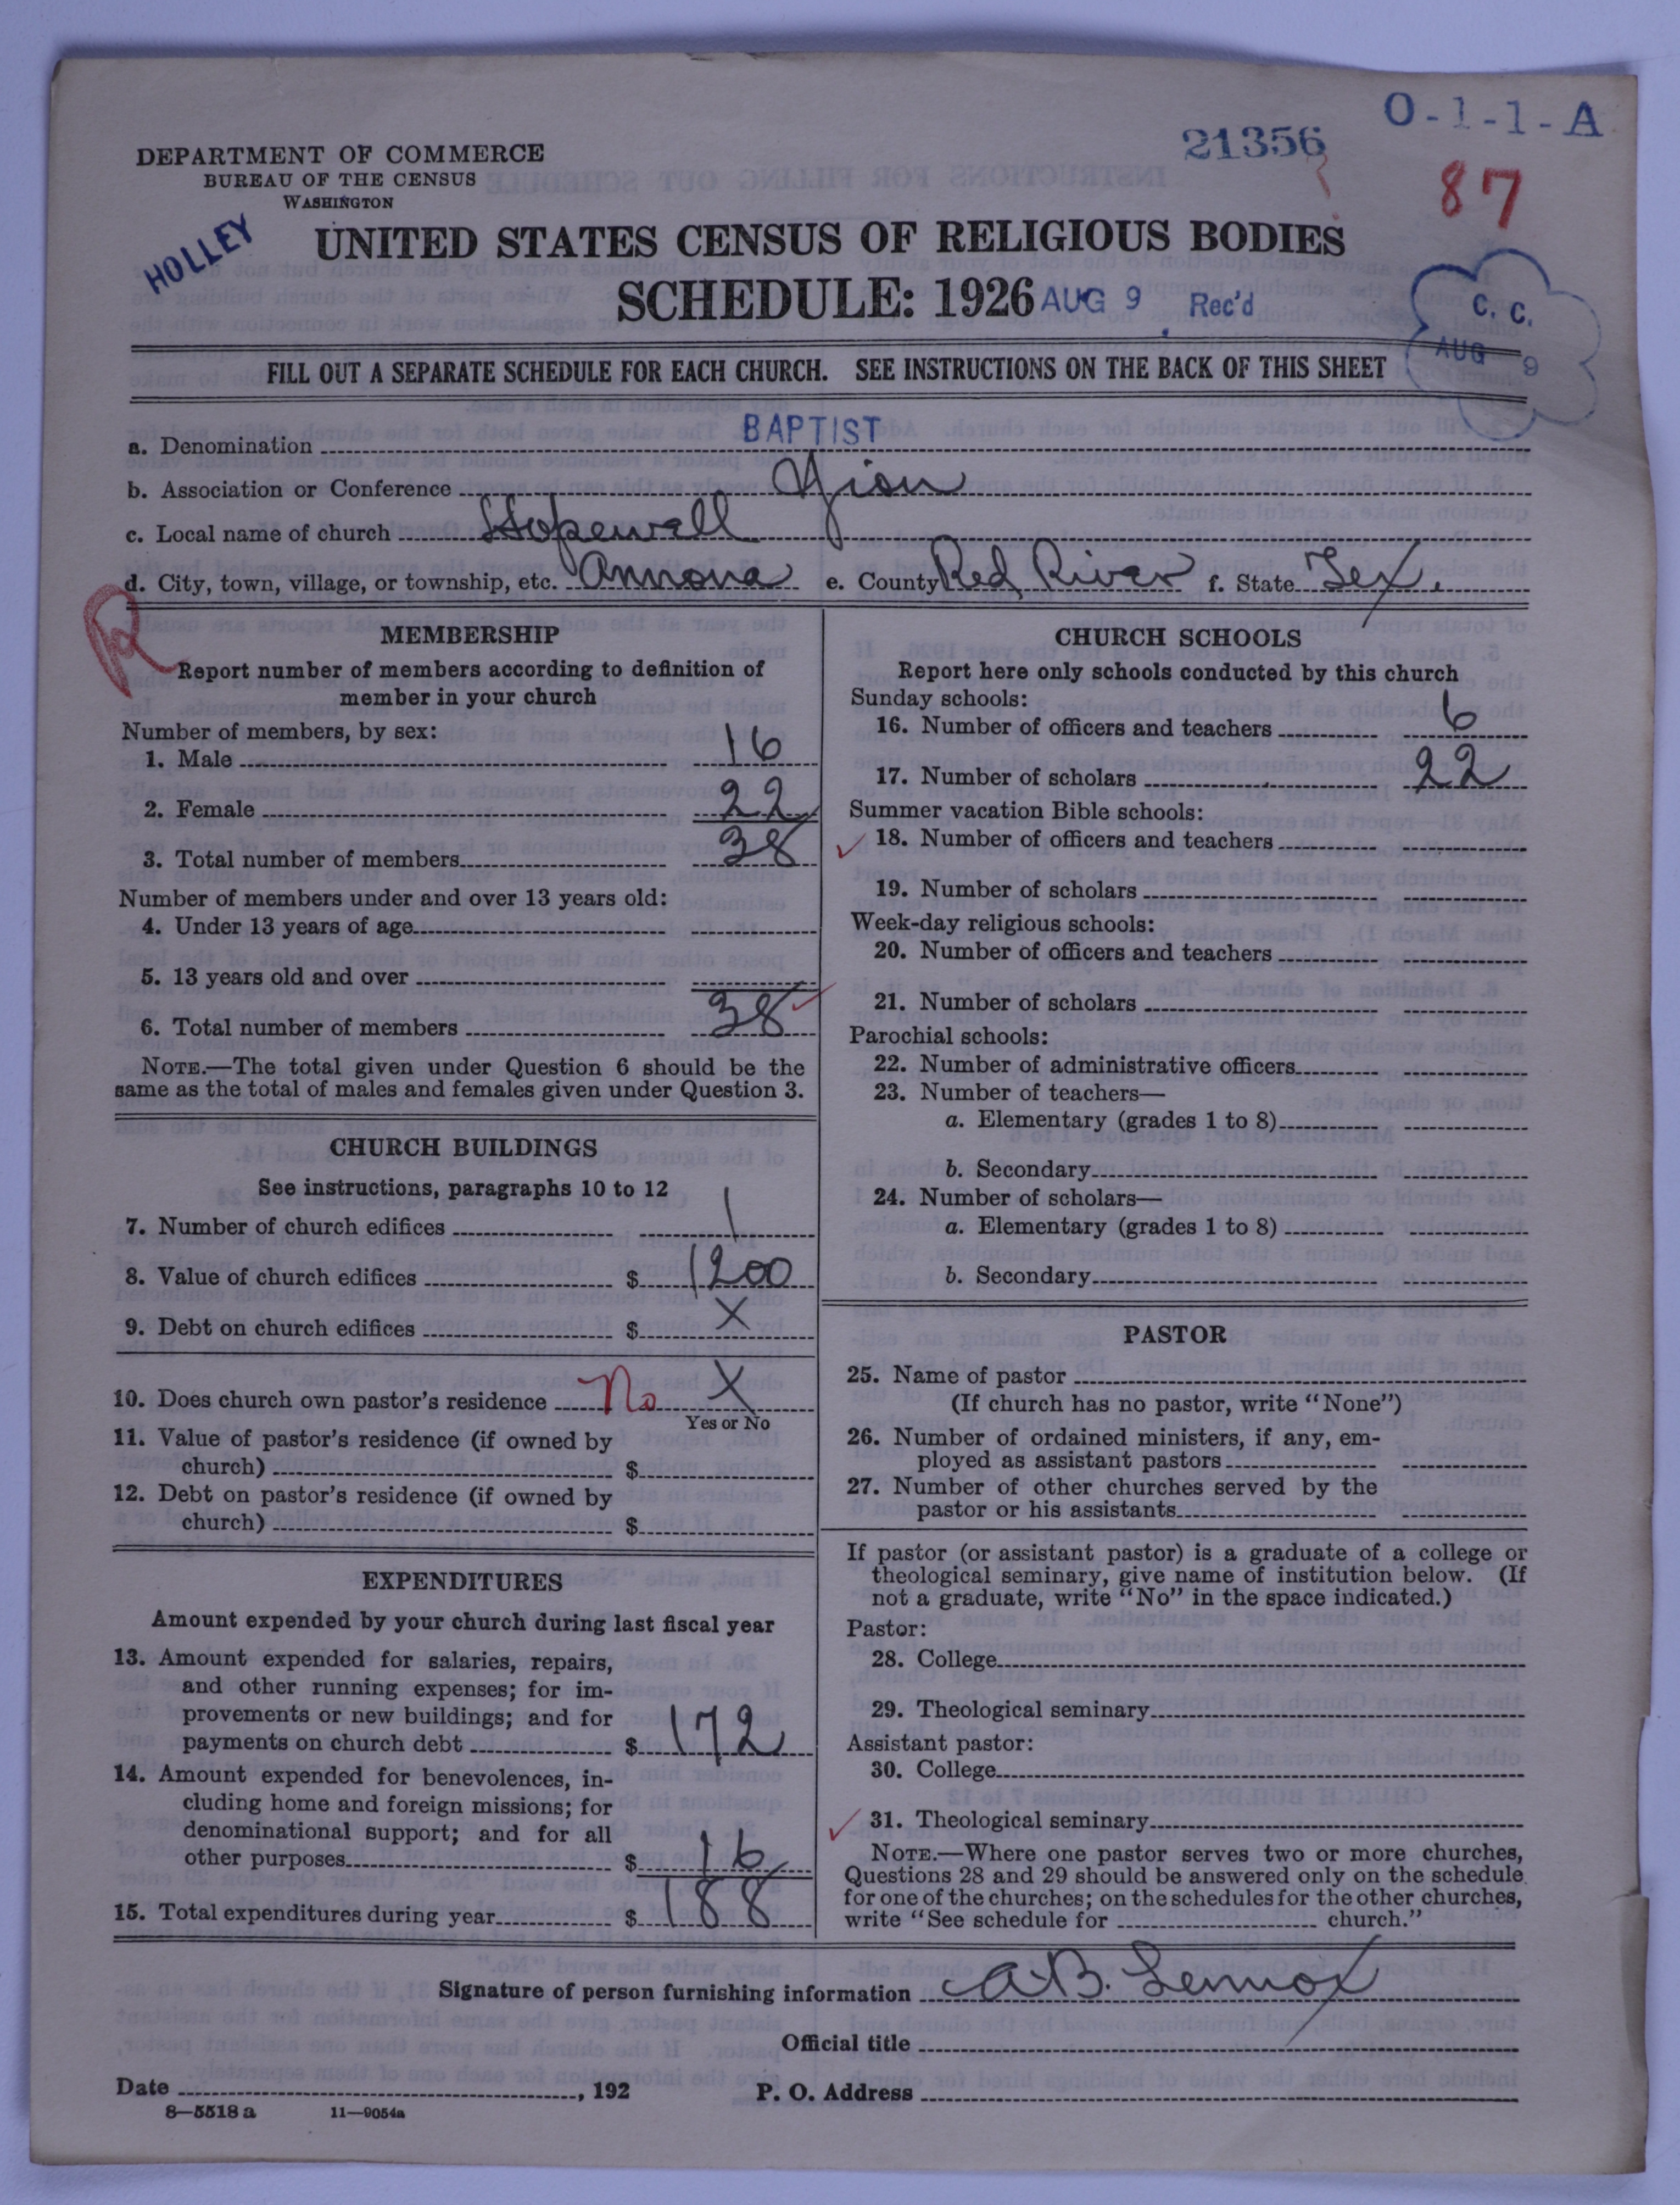 O-1-1-A
21356
87
DEPARTMENT OF COMMERCE
BUREAU OF THE CENSUS
WASHINGTON
HOLLEY
UNITED STATES CENSUS OF RELIGIOUS BODIES
SCHEDULE: 1926 AUG 9 Rec'd
C. C.
AUG 9
FILL OUT A SEPARATE SCHEDULE FOR EACH CHURCH. SEE INSTRUCTIONS ON THE BACK OF THIS SHEET
a. Denomination BAPTIST
b. Association or Conference Zion
c. Local name of church Hopewell
d. City, town, village, or township, etc. Annona e. County Red River f. State Tex.
R
MEMBERSHIP
Report number of members according to definition of
member in your church
Number of members, by sex:
1. Male 16
2. Female 22
3. Total number of members 38
Number of members under and over 13 years old:
4. Under 13 years of age
5. 13 years old and over
6. Total number of members 38
NOTE.—The total given under Question 6 should be the
same as the total of males and females given under Question 3.
CHURCH BUILDINGS
See instructions, paragraphs 10 to 12
7. Number of church edifices 1
8. Value of church edifices $ 1200
9. Debt on church edifices $ X
10. Does church own pastor's residence No X
Yes or No
11. Value of pastor's residence (if owned by
church) $
12. Debt on pastor's residence (if owned by
church) $
EXPENDITURES
Amount expended by your church during last fiscal year
13. Amount expended for salaries, repairs,
and other running expenses; for im-
provements or new buildings; and for
payments on church debt $ 172
14. Amount expended for benevolences, in-
cluding home and foreign missions; for
denominational support; and for all
other purposes $ 16
15. Total expenditures during year $ 188
CHURCH SCHOOLS
Report here only schools conducted by this church
Sunday schools:
16. Number of officers and teachers 6
17. Number of scholars 22
Summer vacation Bible schools:
18. Number of officers and teachers
19. Number of scholars
Week-day religious schools:
20. Number of officers and teachers
21. Number of scholars
Parochial schools:
22. Number of administrative officers
23. Number of teachers—
a. Elementary (grades 1 to 8)
b. Secondary
24. Number of scholars—
a. Elementary (grades 1 to 8)
b. Secondary
PASTOR
25. Name of pastor
(If church has no pastor, write "None")
26. Number of ordained ministers, if any, em-
ployed as assistant pastors
27. Number of other churches served by the
pastor or his assistants
If pastor (or assistant pastor) is a graduate of a college or
theological seminary, give name of institution below. (If
not a graduate, write "No" in the space indicated.)
Pastor:
28. College
29. Theological seminary
Assistant pastor:
30. College
31. Theological seminary
NOTE.—Where one pastor serves two or more churches,
Questions 28 and 29 should be answered only on the schedule
for one of the churches; on the schedules for the other churches,
write "See schedule for church."
Signature of person furnishing information A. B. Lennox
Official title
Date , 192 P. O. Address
8—5518 a 11—9054a